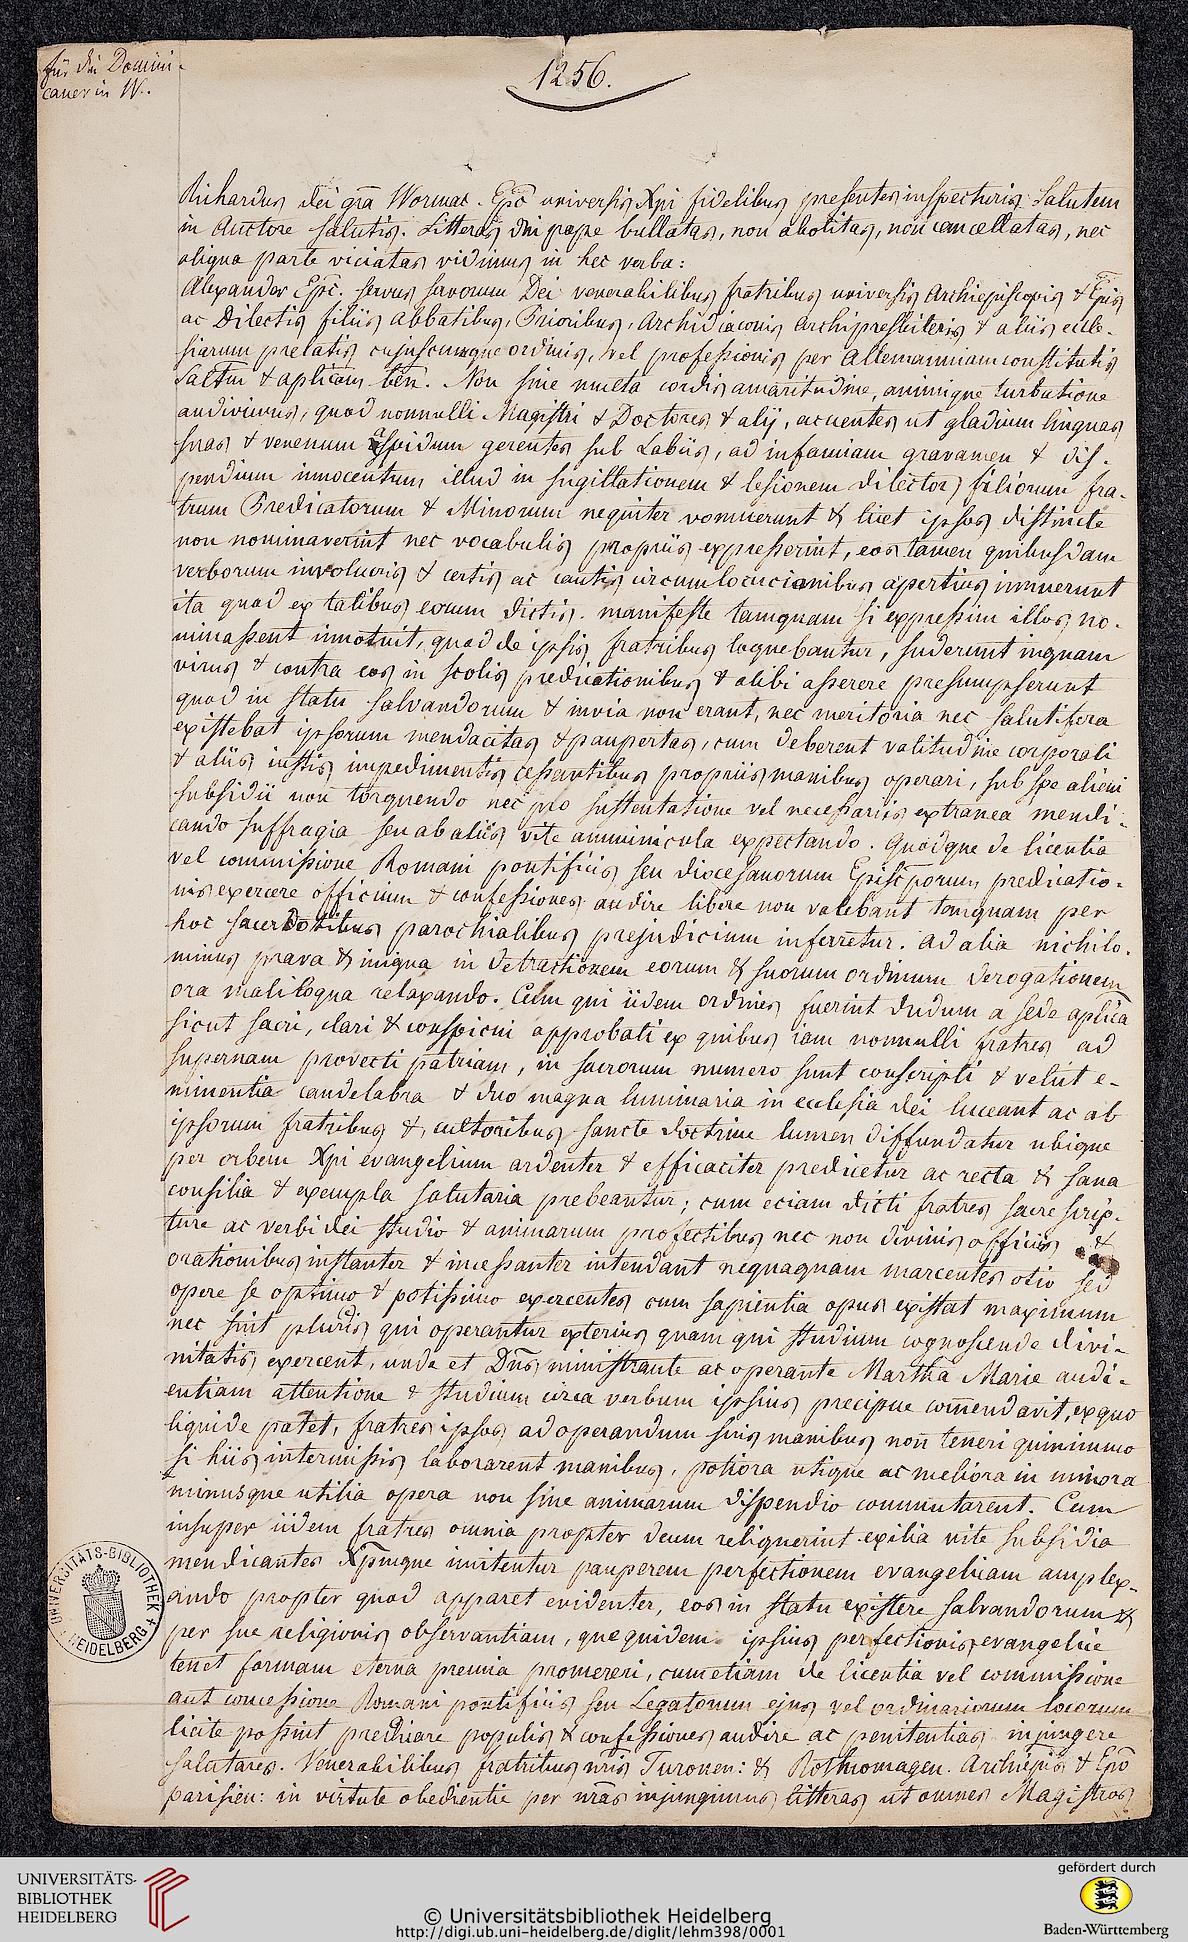 für die Domini-
caner in W.
1256.
Richardus dei gra Wormac. Epc universis Xpi fidelibus presentes inspecturis Salutem
in Auctore salutis. Litteras dni pape bullatas, non abolitas, non cancellatas, nec
aliqua parte viciatas vidimus in hec verba:
Alexander Epc. servus servorum Dei venerabilibus fratribus universis Archiepiscopis & Epis
ac Dilectis filiis Abbatibus, Prioribus, Archidiaconis Archipresbiteris & aliis eccle-
siarum prelatis cujuscumque ordinis, vel professionis per Allemanniam constitutis
Saltm & aplicam ben. Non sine multa cordis amaritudine, animique turbatione
audivimus, quod nonnulli Magistri & Doctores & alij, acuentes ut gladium linguas
suas & venenum aspidum gerentes sub Labiis, ad infamiam gravamen & dis-
pendium innocentum, illud in sugillationem & lesionem dilector) filiorum fra-
trum Predicatorum & Minorum nequiter vomuerunt & licet ipsos distincte
non nominaverint nec vocabulis propriis expresserint, eos tamen quibusdam
verborum involucris & certis ac cautis circumlocucionibus apertius innuerunt
ita quod ex talibus eorum dictis. manifeste tamquam si expressim illos no-
minassent innotuit, quod de ipsis fratribus loquebantur, suderunt inquam
virus & contra eos in scolis predicationibus & alibi asserere presumpserunt
quod in statu salvandorum & invia non erant, nec meritoria nec salutifera
existebat ipsorum mendacitas & paupertas, cum deberent valitudine corporali
& aliis iustis impedimentis cessantibus propriis manibus operari, sub spe alieni
subsidii non torquendo nec pro sustentatione vel necessariis extranea mendi-
cando suffragia seu ab aliis vite amminicula expectando. Quodque de licentia
vel commissione Romani pontificis seu diocesanorum Episcporum, predicatio-
nis exercere officium & confessiones audire libere non valebant tamquam per
hoc sacerdotibus parochialibus prejudicium inferretur. ad alia nichilo-
minus prava & iniqua in detractionem eorum & suorum ordinum derogationem
ora maliloqua relaxando. Cum qui iidem ordines fuerint dudum a sede aplica
sicut sacri, clari & conspicui approbati ex quibus iam nonnulli fratres ad
supernam provecti patriam, in sacrorum numero sunt conscripti & velut e-
minentia candelabra & duo magna luminaria in ecclesia dei luceant ac ab
ipsorum fratribus &, cultoribus sancte doctrine lumen diffundatur ubique
per orbem Xpi evangelium ardenter & efficaciter predicetur ac recta & sana
consilia & exempla salutaria prebeantur; cum eciam dicti fratres sacre scrip-
ture ac verbi dei studio & animarum profectibus nec non divinis officiis &
orationibus instanter & incessanter intendant nequaquam marcentes otio sed
opere se optimo & potissimo exercentes cum sapientia opus existat maximum
nec sint pluris qui operantur exterius quam qui studium cognoscende divi-
nitatis exercent, unde et Dns ministrante ac operante Martha Marie audi-
entiam attentione & studium circa verbum ipsius precipue comendavit, ex quo
liquide patet, fratres ipsos ad operandum suis manibus non teneri quinimmo
si hiis intermissis laborarent manibus, potiora utique ac meliora in minora
minusque utilia opera non sine animarum dispendio commutarent. Cum
insuper iidem fratres omnia propter deum reliquerint exilia vite subsidia
mendicantes Xpmque imitentur pauperem perfectionem evangelicam amplex-
ando propter quod apparet evidenter, eos in statu existere salvandorum &
per sue religionis observantiam, que quidem ipsius perfectionis evangelice
tenet formam eterna premia promereri, cum etiam de licentia vel commissione
aut concessione Romani pontificis seu Legatorum ejus vel ordinariorum locorum
licite possint predicare populis & confessiones audire ac penitentias injungere
salutares. Venerabilibus fratribus nris Turonen: & Rothomagen. Archiepis & Epo
parisien: in virtute obedientie per nras injungimus litteras ut omnes Magistros
UNIVERSITÄTS-BIBLIOTHEK HEIDELBERG
UNIVERSITÄTS-
BIBLIOTHEK
HEIDELBERG
© Universitätsbibliothek Heidelberg
http://digi.ub.uni-heidelberg.de/diglit/lehm398/0001
gefördert durch
Baden-Württemberg